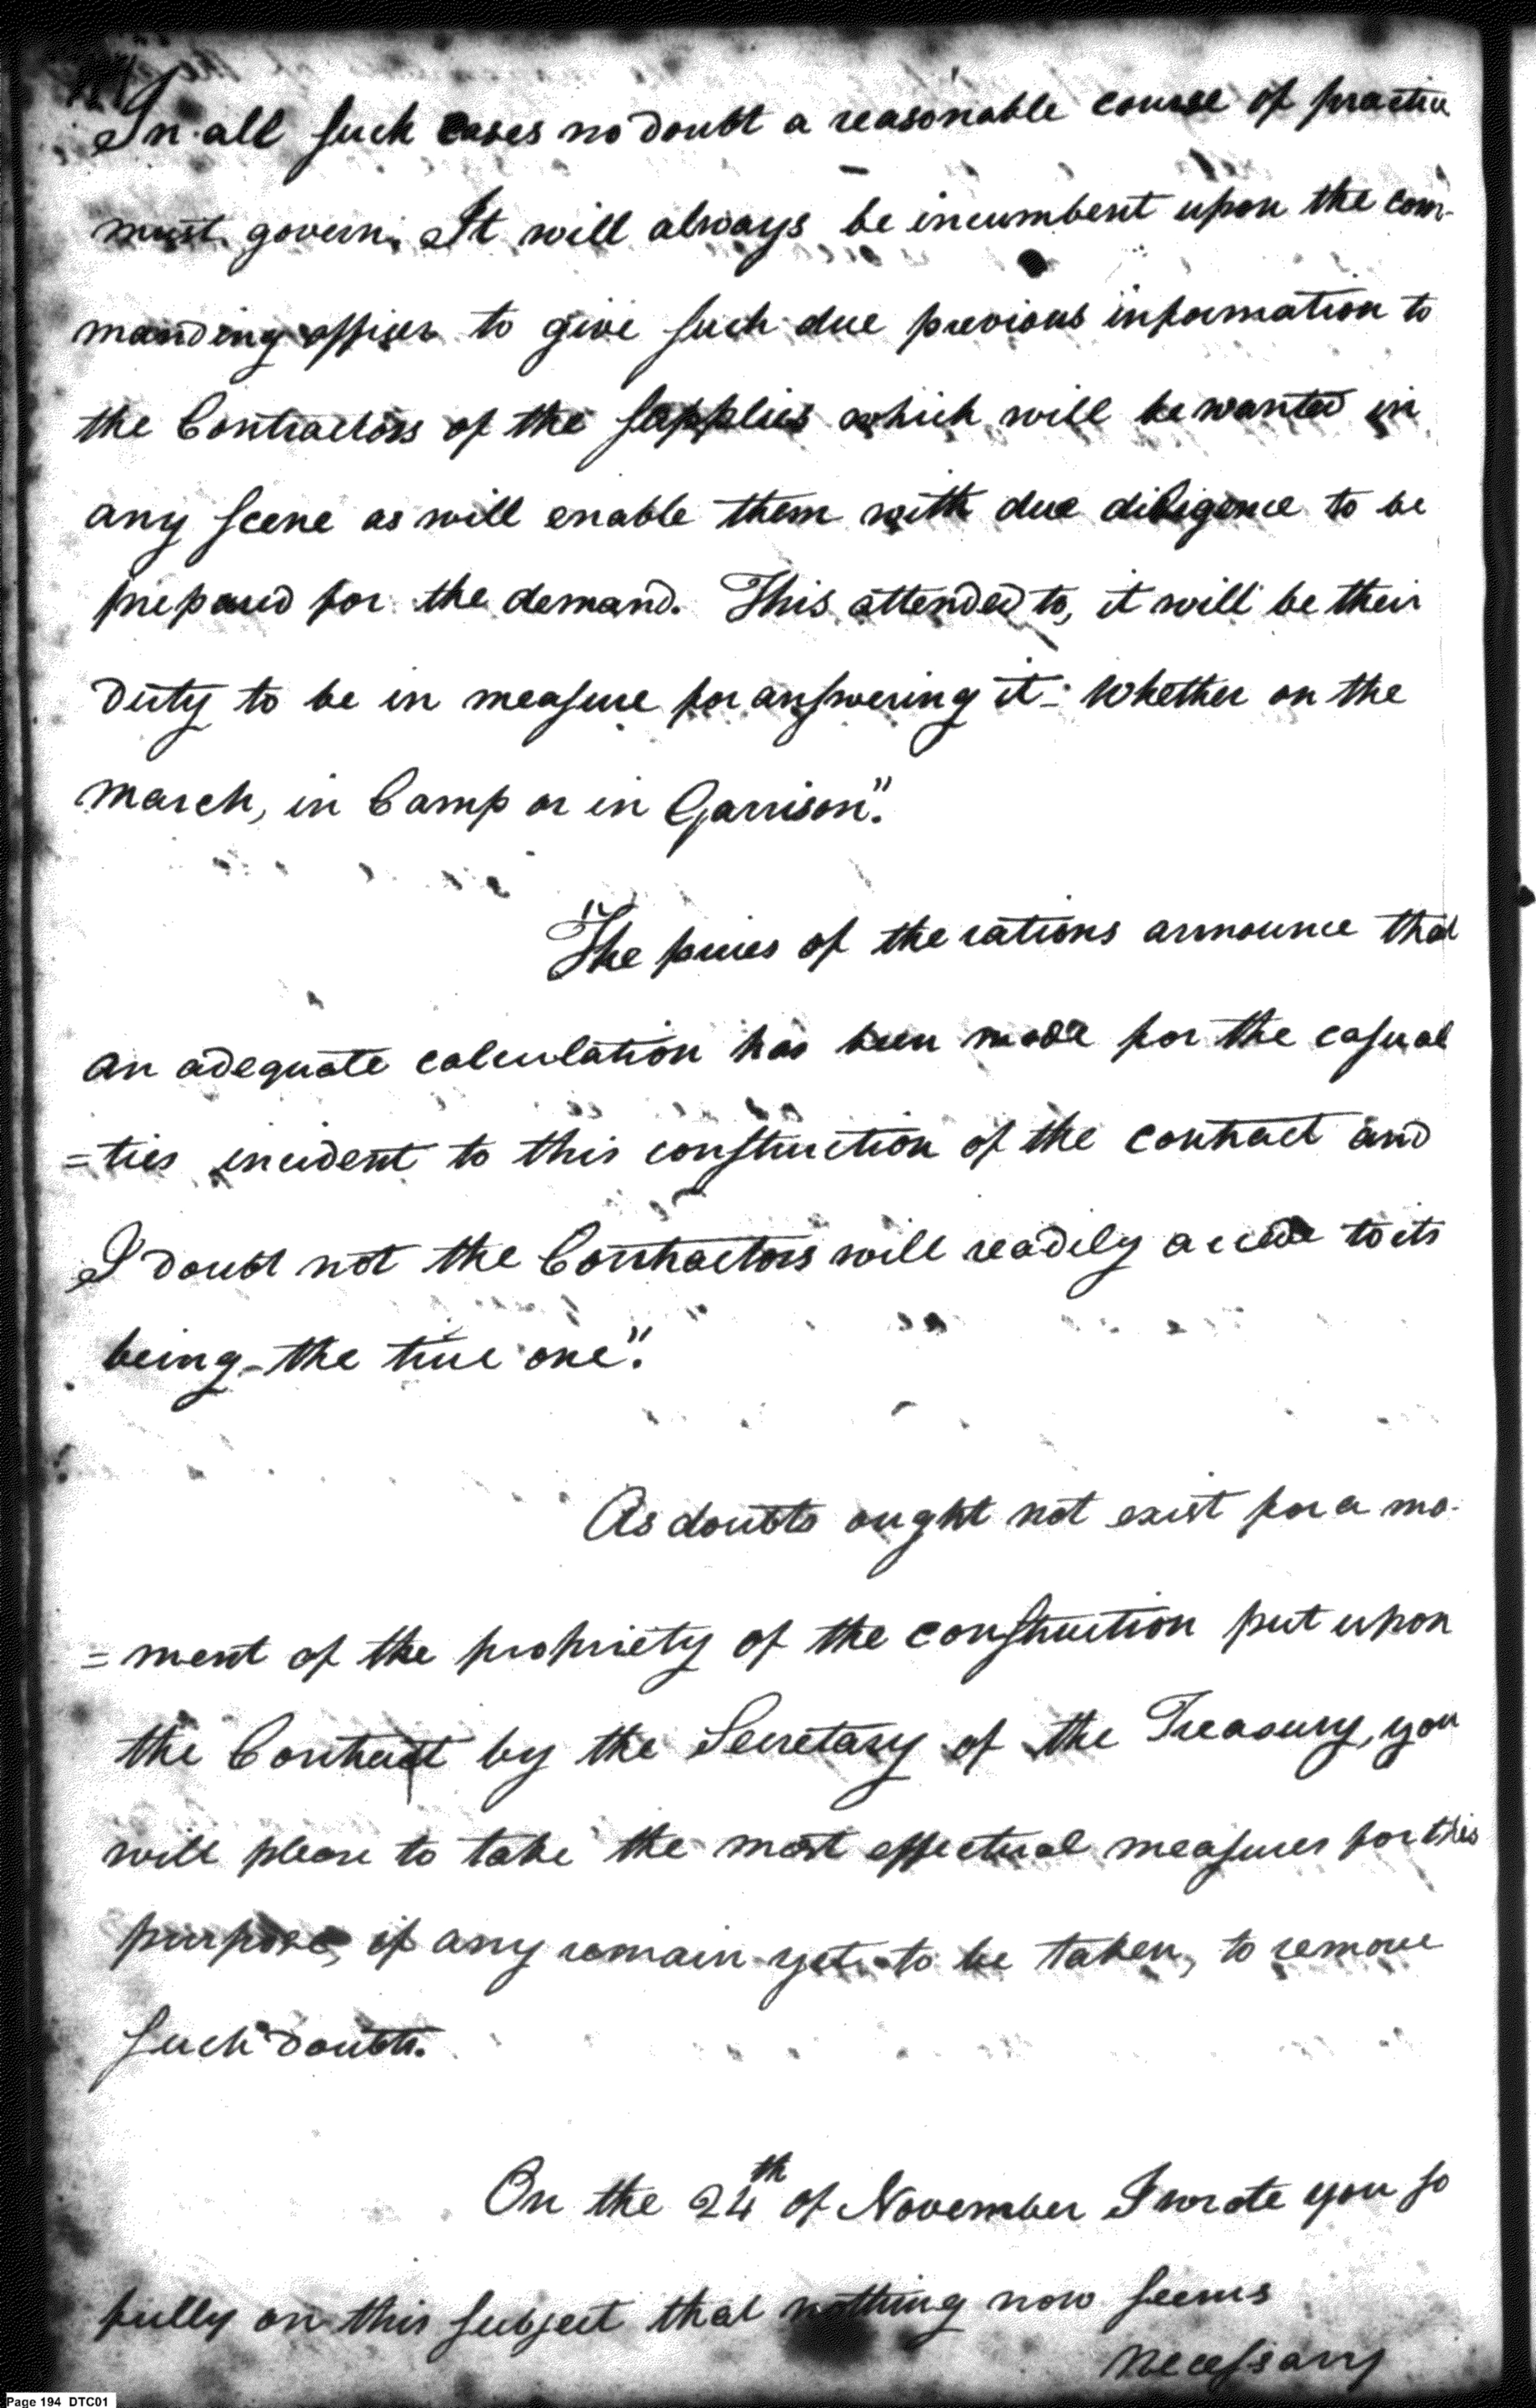 In all such cases no doubt a reasonable course of practice
must govern. It will always be incumbent upon the com-
manding officer to give such due previous information to
the Contractors of the supplies which will be wanted in
any scene as will enable them with due diligence to be
prepared for the demand. This attended to, it will be their
duty to be in measure for answering it - whether on the
march, in Camp or in Garrison".
"The prices of the rations announce that
an adequate calculation has been made for the casual
=ties incident to this construction of the contract and
I doubt not the Contractors will readily accede to its
being the true one".
As doubts ought not exist for a mo-
=ment of the propriety of the construction put upon
the Contract by the Secretary of the Treasury, you
will please to take the most effectual measures for this
purpose, if any remain yet to be taken, to remove
such doubts.
On the 24th of November I wrote you so
fully on this subject that nothing now seems
necessary
Page 194 DTC01